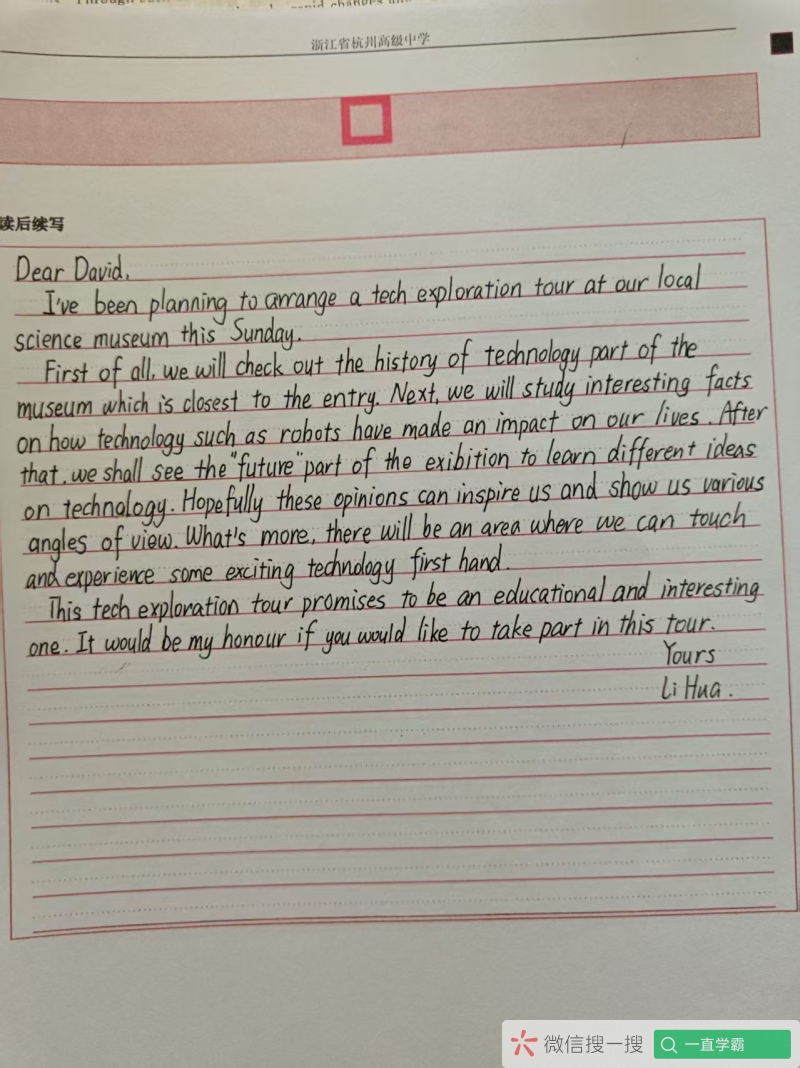 浙江省杭州高级中学
读后续写
Dear David,
I've been planning to arrange a tech exploration tour at our local
science museum this Sunday.
First of all, we will check out the history of technology part of the
museum which is closest to the entry. Next, we will study interesting facts
on how technology such as robots have made an impact on our lives. After
that, we shall see the "future" part of the exibition to learn different ideas
on technology. Hopefully these opinions can inspire us and show us various
angles of view. What's more, there will be an area where we can touch
and experience some exciting technology first hand.
This tech exploration tour promises to be an educational and interesting
one. It would be my honour if you would like to take part in this tour.
Yours
Li Hua.
微信搜一搜
一直学霸